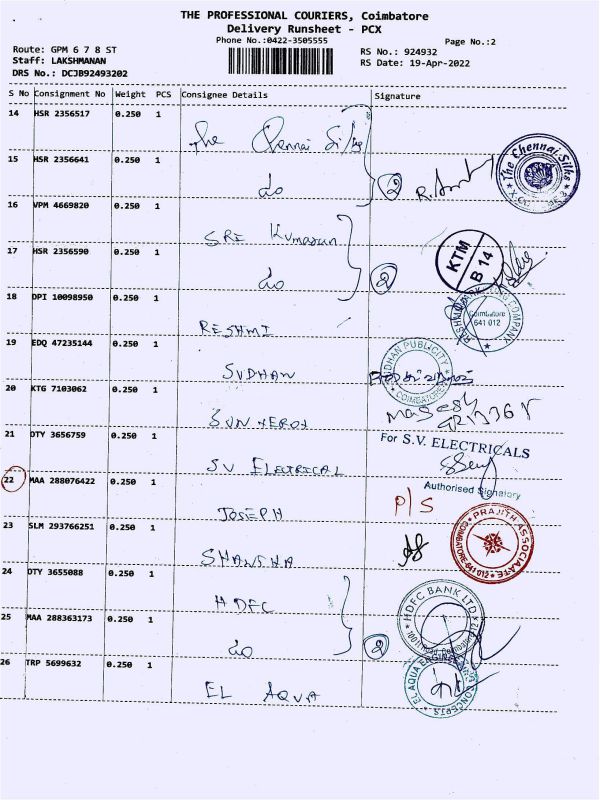 THE PROFESSIONAL COURIERS, Coimbatore
Delivery Runsheet - PCX
Phone No.:0422-3505555
Page No.:2
Route: GPM 6 7 8 ST
RS No.: 924932
Staff: LAKSHMANAN
RS Date: 19-Apr-2022
DRS No.: DCJB92493202
S No Consignment No Weight PCS Consignee Details Signature
14 HSR 2356517 0.250 1 The Chennai Silks
15 HSR 2356641 0.250 1 do 2
The Chennai Silks
16 VPM 4669820 0.250 1 SRI Kumaran
17 HSR 2356590 0.250 1 do 2
KTM
B 14
18 DPI 10098950 0.250 1 RESHMI
COMPANY
Coimbatore
641 012
19 EDQ 47235144 0.250 1 SUDHAN
SUDHAN PUBLICITY
COIMBATORE
20 KTG 7103062 0.250 1 SUN XEROX
21 OTY 3656759 0.250 1 SV ELECTRICAL
For S.V. ELECTRICALS
Authorised Signatory
22 MAA 288076422 0.250 1 JOSEPH P/S
23 SLM 293766251 0.250 1 SHANTHA
PRAJITH ASSOCIAATE
COIMBATORE-641 012
24 OTY 3655088 0.250 1 HDFC
HDFC BANK LTD
25 MAA 288363173 0.250 1 do 2
26 TRP 5699632 0.250 1 EL AQUA
EL AQUA ENGINEERING
CONCEPTS